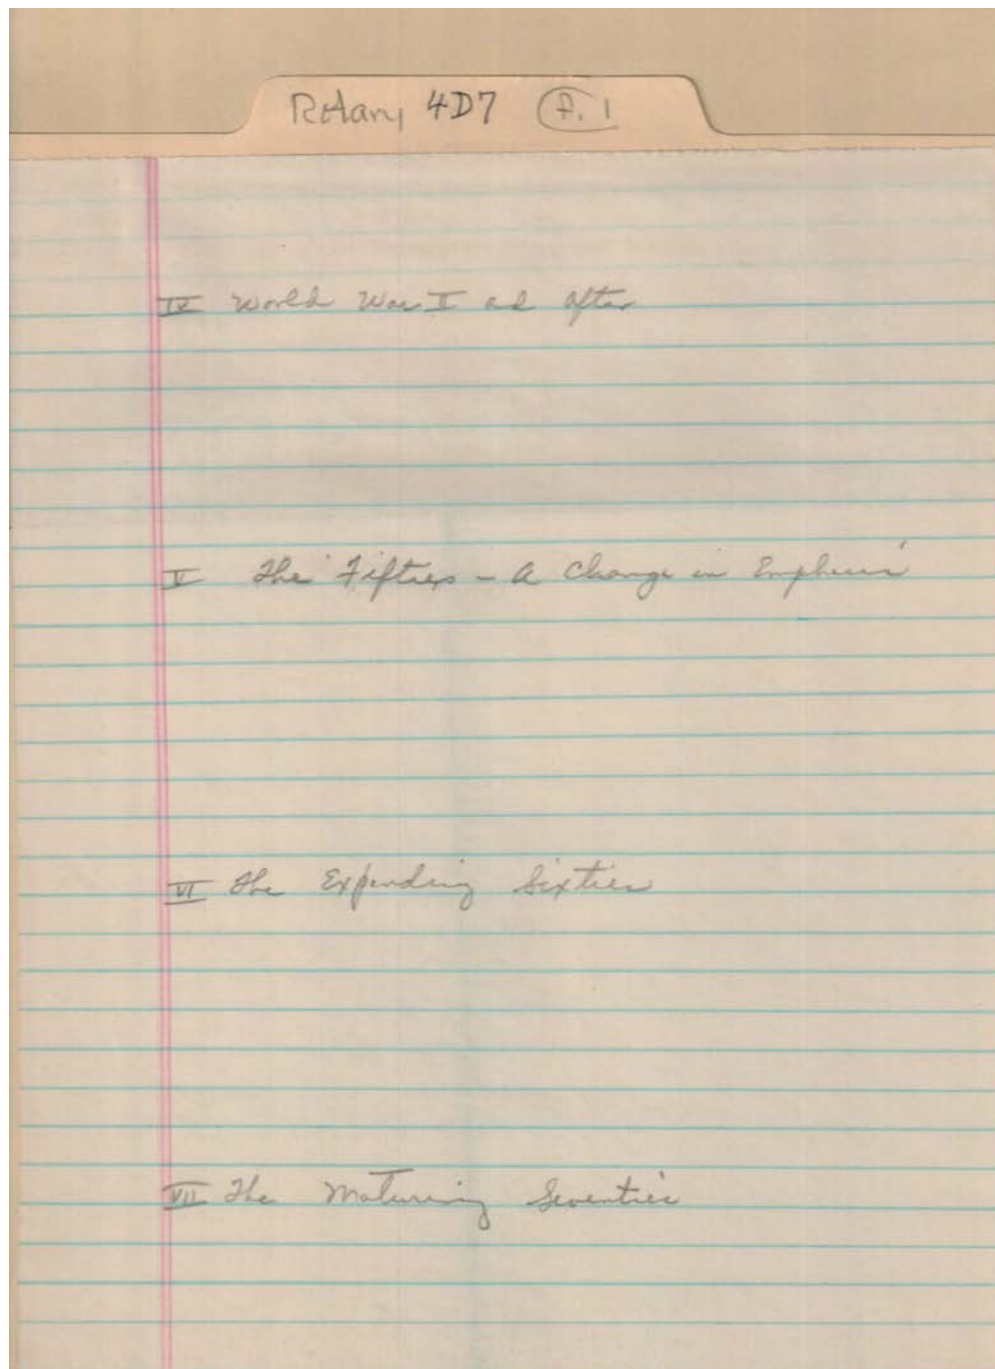 Rotary 4D7 P. 1
IV World War II and after
V The Fifties - A Change in Emphasis
VI The Expanding Sixties
VII The Maturing Seventies